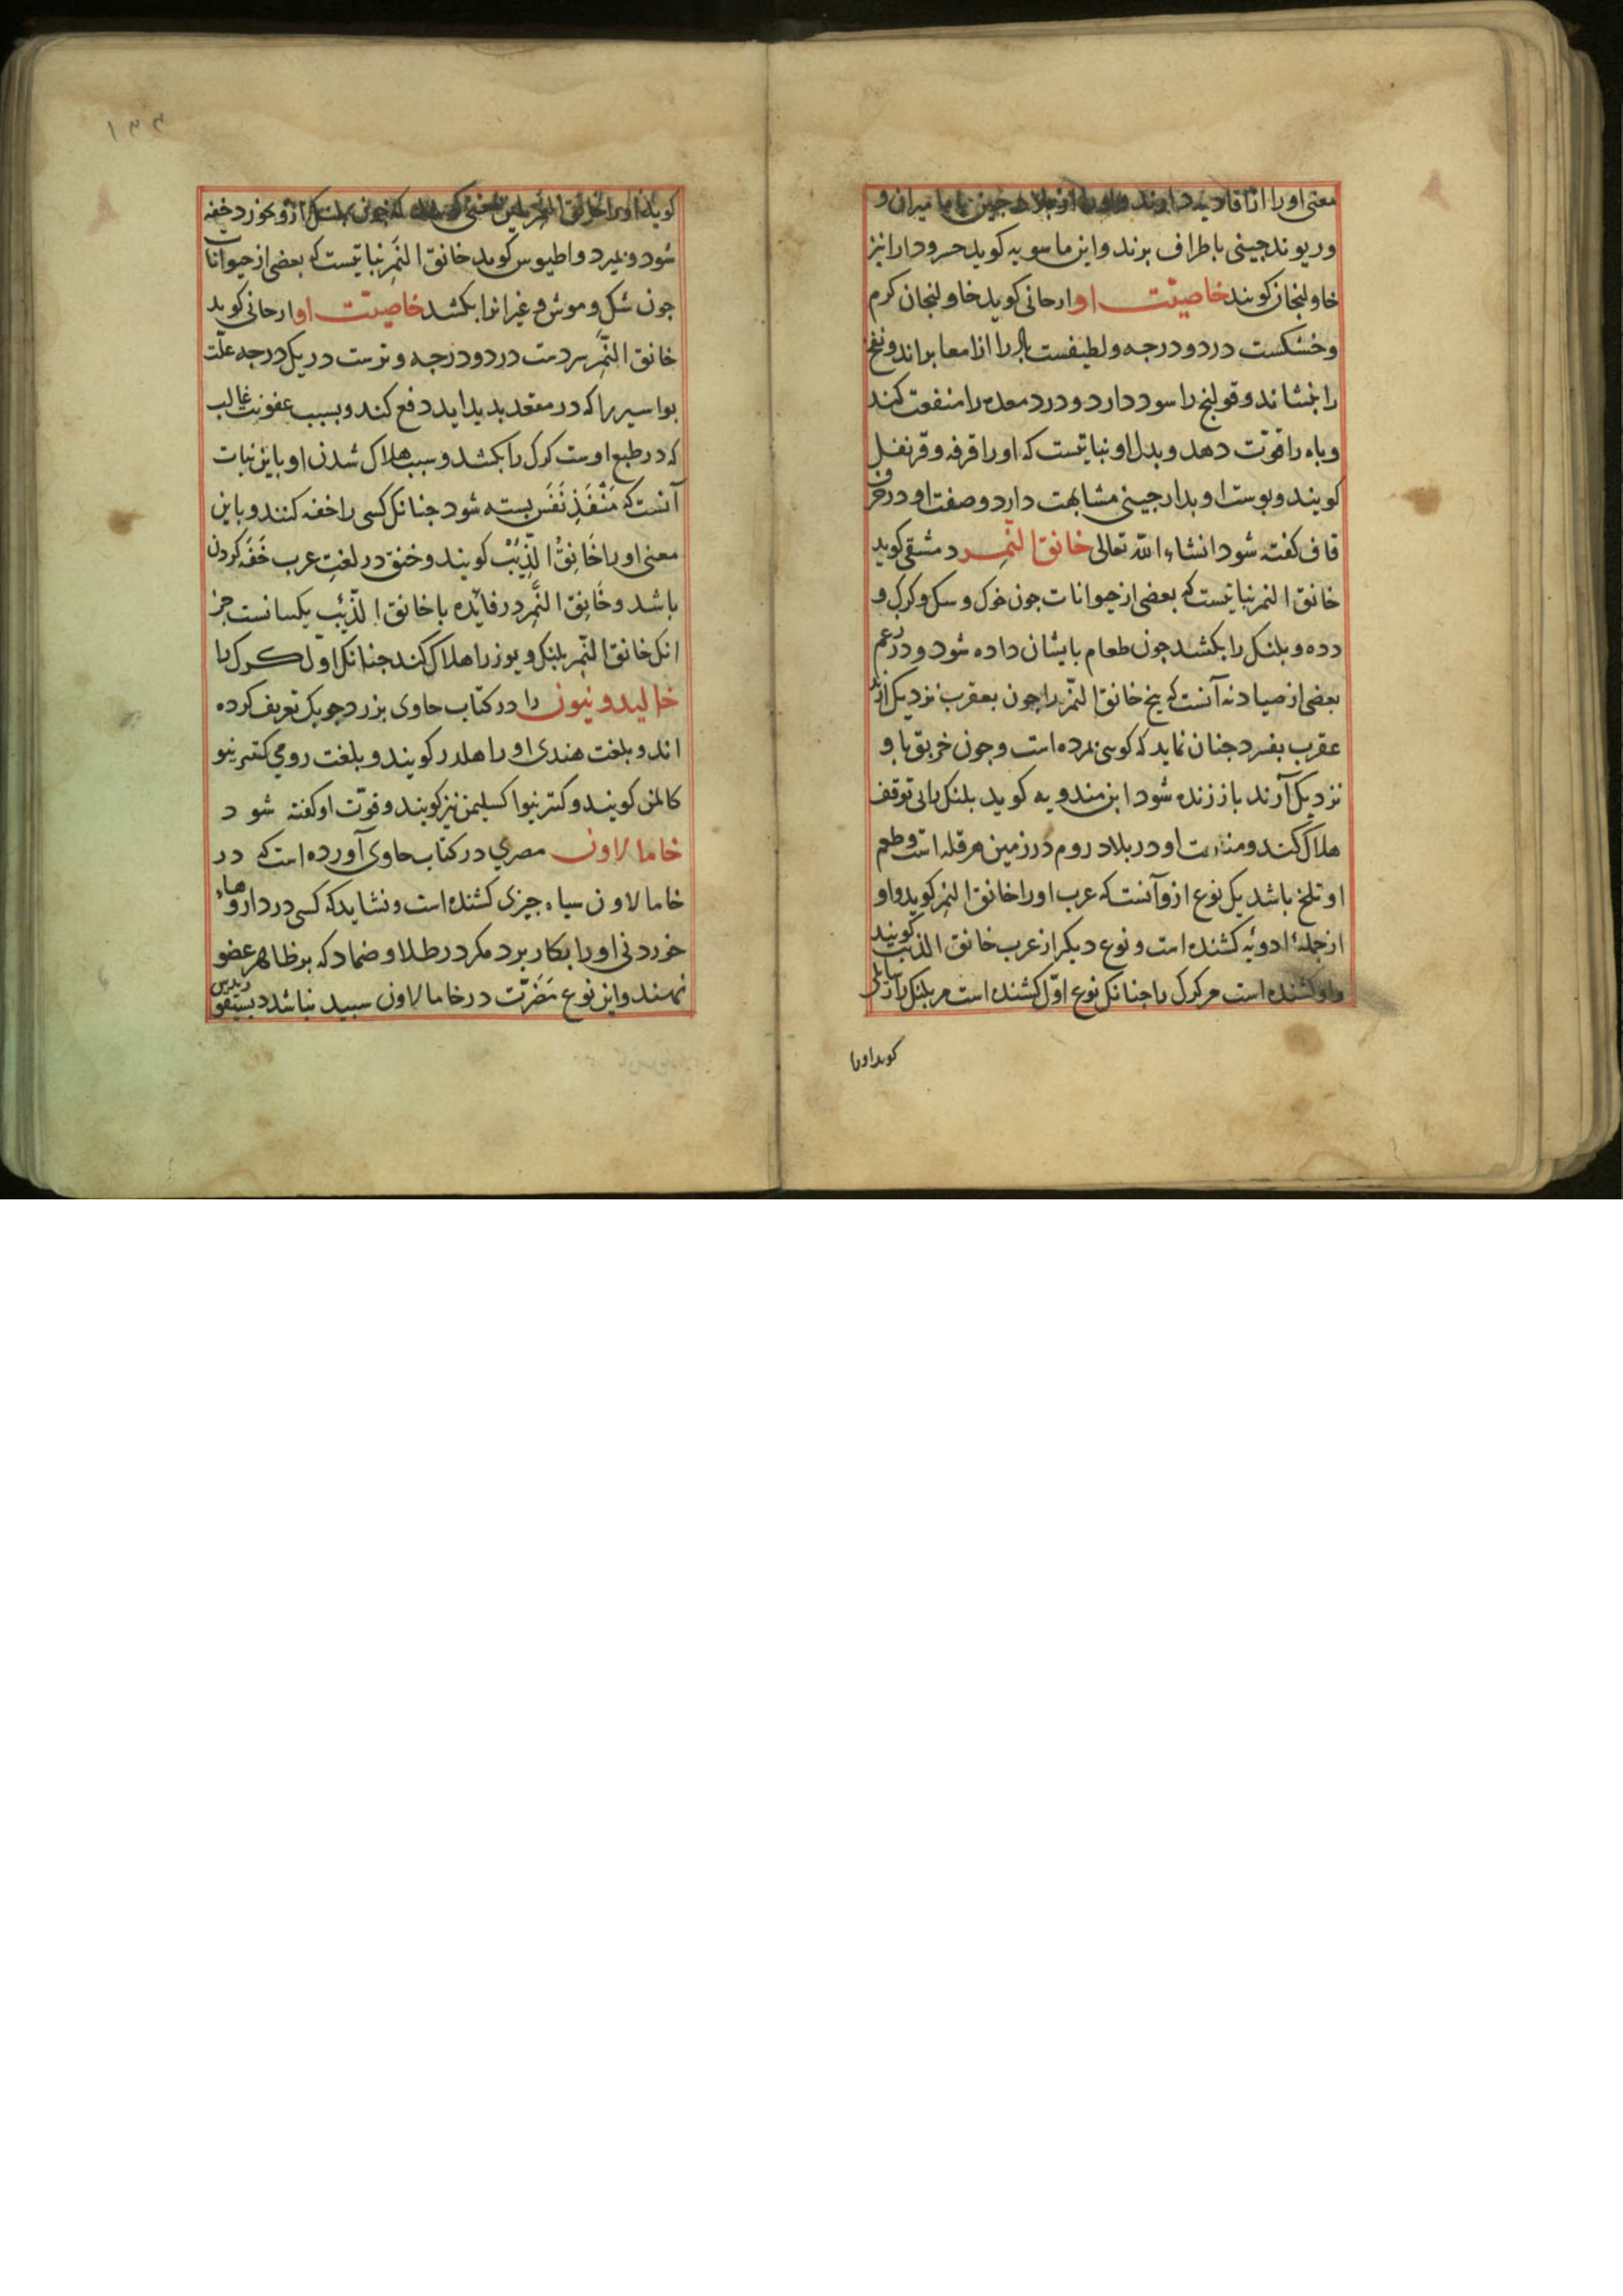 معنی او را از افاویه دارند و او را از بلاد چین با مامیران و
و ریوند جینی باطراف برند و ابن ماسویه کوید خسرودارا نیز
خاولنجان کویند خاصیّت او ارجانی کوید خاولنجان کرم
و خشکست در دو درجه و لطیفست باد را از امعا براند و نفخ
را بنشاند و قولنج را سود دارد و درد معده را منفعت کند
و باه را قوّت دهد و بدل او نباتیست که او را قرفه و قرنفل
کویند و پوست او بدارجینی مشابهت دارد و صفت او در حرف
قاف کفته شود انشاء الله تعالی خانق النّمر دمشقی کوید
خانق النمر نباتیست که بعضی از حیوانات جون خوک و سک و کرک و
دده و بلنک را بکشد جون طعام بایشان داده شود و در زعم
بعضی از صیادنه آنست که بیخ خانق النّمر را جون بعقرب نزدیک آرند
عقرب بفسرد جنان نماید که کویی بمرده است و جون خربق باو
نزدیک آرند باز زنده شود ابن مندویه کوید بلنک را بی توقف
هلاک کند و منابت او در بلاد روم در زمین هرقله است و طعم
او تلخ باشد یک نوع ازو آنست که عرب او را خانق النمر کوید و او
از جملهٔ ادویه کشنده است و نوع دیکر از عرب خانق الذئب کویند
و او کشنده است مر کرک را جنانک نوع اوّل کشنده است مر بلنک را
کوید او را
۱۳۳
کویند او را خانق النمر باین معنی کویند که جون بلنک ازو بخورد خفه
شود و بمیرد و اطیوس کوید خانق النّمر نباتیست که بعضی از حیوانات
جون سک و موش و غیر انرا بکشد خاصیّت او ارجانی کوید
خانق النّمر سردست در دو درجه و ترست در یک درجه علّت
بواسیر را که در مقعد بدید اید دفع کند و بسبب عفونت غالب
که در طبع اوست کرک را بکشد و سبب هلاک شدن او باین نبات
آنست که مَنْفَذِ نَفَس بسته شود جنانک کسی را خفه کنند و باین
معنی او را خَانِقُ الذِّئب کویند و خنق در لغت عرب خَفَه کردن
باشد و خَانِق النَّمِر در فائده با خانق الذّئب یکسانست جز
انک خانق النّمر بلنک و یوز را هلاک کند جنانک اوّل کرک را
خالیدونیون را در کتاب حاوی بزردجوبک تعریف کرده
اند و بلغت هندی او را هلدر کویند و بلغت رومی کتترنیو
کالمن کویند و کتترنیوا کسلیمن نیز کویند و قوّت او کفته شود
خامالاون مصری در کتاب حاوی آورده است که در
خامالاون سیاه جیزی کشنده است و نشاید که کسی در داروهاء
خوردنی او را بکار برد مکر در طلا و ضماد که بر ظاهر عضو
نهند و این نوع مَضَرّت در خامالاون سبید نباشد دیسقوریدس